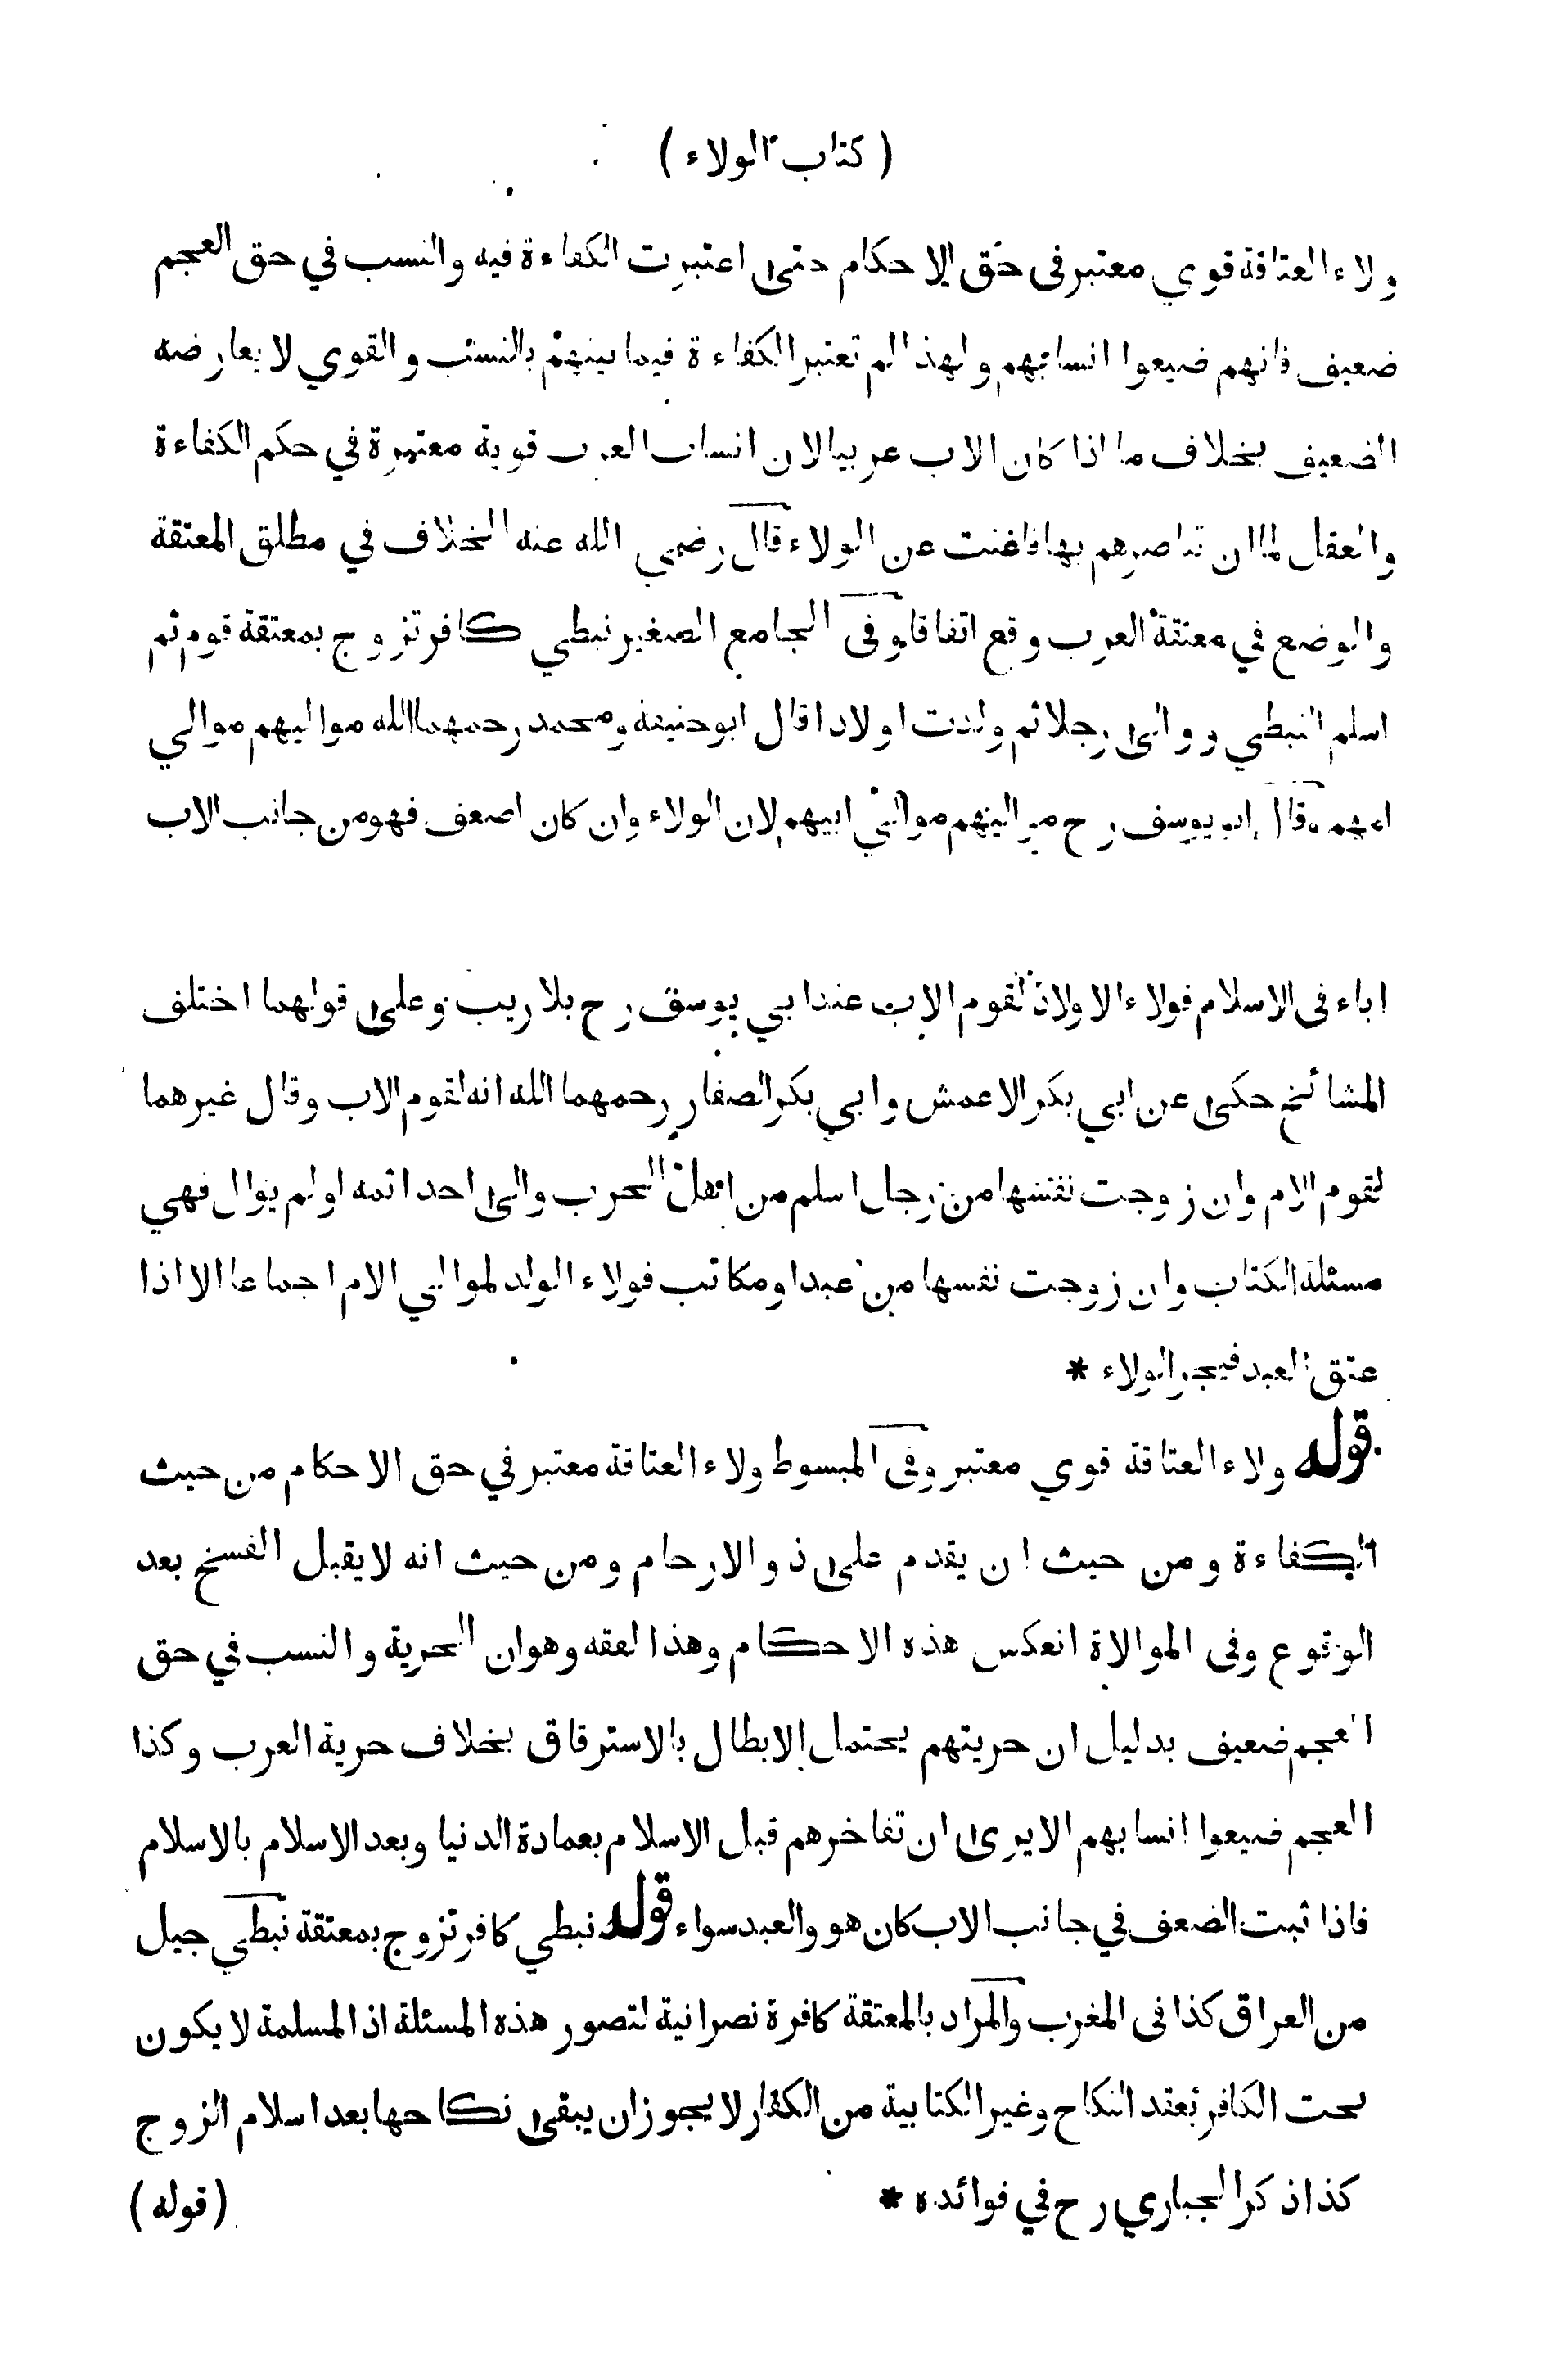 ( كتاب الولاء )
ولاء العتاقة قوي معتبر فى حق الاحكام حتى اعتبرت الكفاءة فيه والنسب في حق العجم
ضعيف فانهم ضيعوا انسابهم ولهذا لم تعتبر الكفاءة فيما بينهم بالنسب والقوي لا يعارضه
الضعيف بخلاف ما اذا كان الاب عربيا لان انساب العرب قوية معتبرة في حكم الكفاءة
والعقل لما ان تناصرهم بها فاغنت عن الولاء قال رضي الله عنه الخلاف في مطلق المعتقة
والوضع في معتقة العرب وقع اتفاقا وفى الجامع الصغير نبطي كافر تزوج بمعتقة قوم ثم
اسلم النبطي ووالى رجلا ثم ولدت اولادا قال ابو حنيفة ومحمد رحمهما الله مواليهم موالي
امهم وقال ابو يوسف رح مواليهم موالي ابيهم لان الولاء وان كان اضعف فهو من جانب الاب
اباء فى الاسلام فولاء الاولاد لقوم الاب عند ابي يوسف رح بلا ريب وعلى قولهما اختلف
المشائخ حكى عن ابي بكر الاعمش وابي بكر الصفار رحمهما الله انه لقوم الاب وقال غيرهما
لقوم الام وان زوجت نفسها من رجل اسلم من اهل الحرب والى احدا ثمه اولم يوال فهي
مسئلة الكتاب وان زوجت نفسها من عبد او مكاتب فولاء الولد لموالي الام اجماعا الا اذا
عتق العبد فيجر الولاء *
قوله ولاء العتاقة قوي معتبر وفى المبسوط ولاء العتاقة معتبر في حق الاحكام من حيث
الكفاءة ومن حيث ان يقدم على ذو الارحام ومن حيث انه لا يقبل الفسخ بعد
الوقوع وفى الموالاة انعكس هذه الاحكام وهذا لفقه وهو ان الحرية والنسب في حق
العجم ضعيف بدليل ان حريتهم يحتمل الابطال بالاسترقاق بخلاف حرية العرب وكذا
العجم ضيعوا انسابهم الا يرى ان تفاخرهم قبل الاسلام بعمادة الدنيا وبعد الاسلام بالاسلام
فاذا ثبت الضعف في جانب الاب كان هو والعبد سواء قوله نبطي كافر تزوج بمعتقة نبطي جيل
من العراق كذا فى المغرب والمراد بالمعتقة كافرة نصرانية لتصور هذه المسئلة اذ المسلمة لا يكون
تحت الكافر بعقد النكاح وغير الكتابية من الكفار لا يجوز ان يبقى نكاحها بعد اسلام الزوج
كذا ذكر الجباري رح في فوائده *
( قوله )